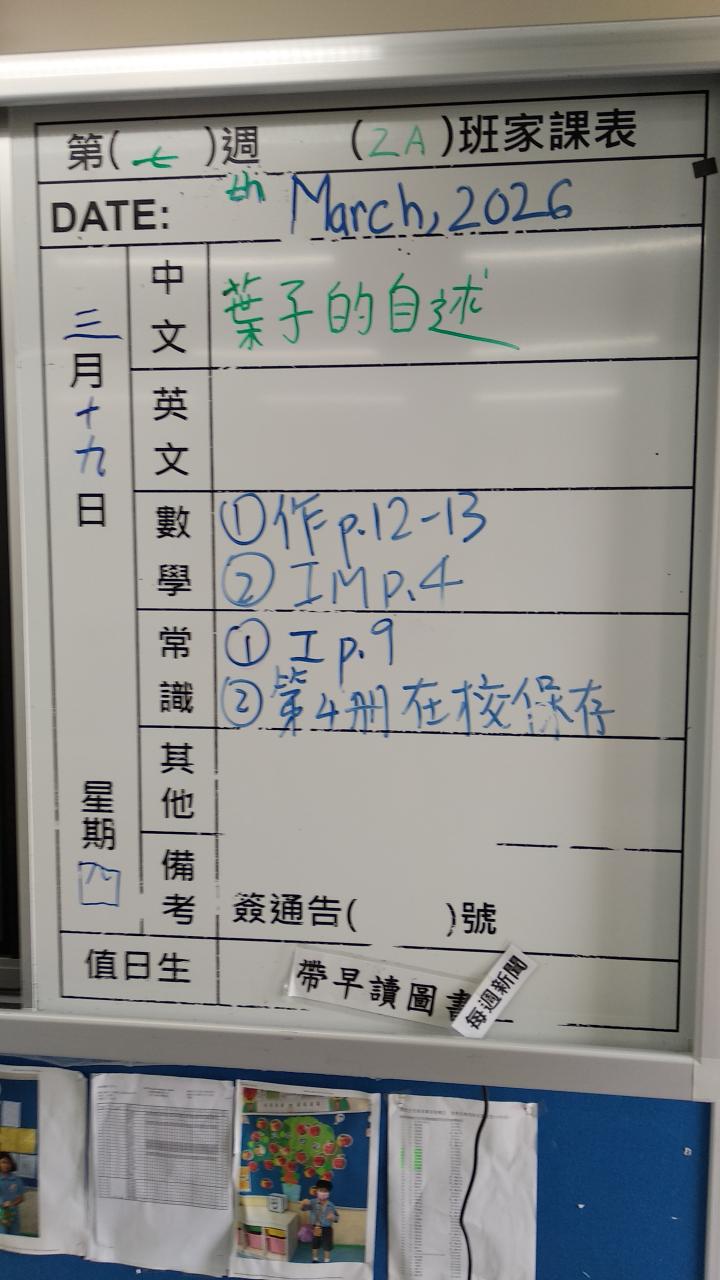 第(七)週 (2A)班家課表
DATE: th March, 2026
三月十九日
星期四
中文
葉子的自述
英文
數學
①作p.12-13
②IMp.4
常識
①工p.9
②第4冊在校保存
其他
備考
簽通告( )號
值日生
帶早讀圖書
每週新聞